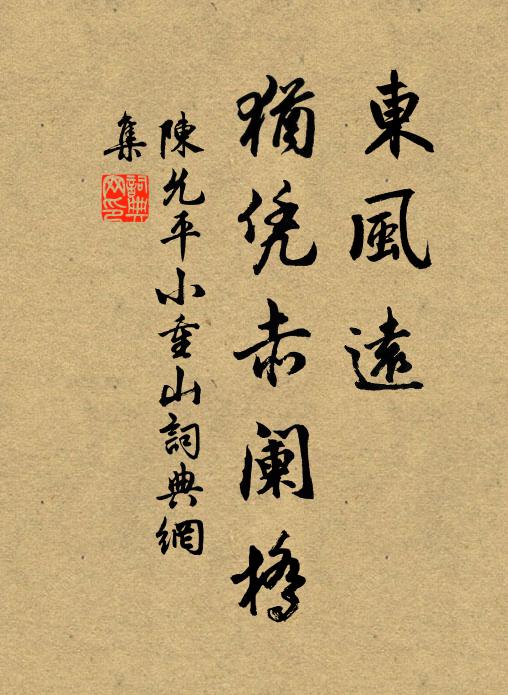 東風遠
猶凭赤阑橋
陳允平小重山詞典網
集
詞典网印